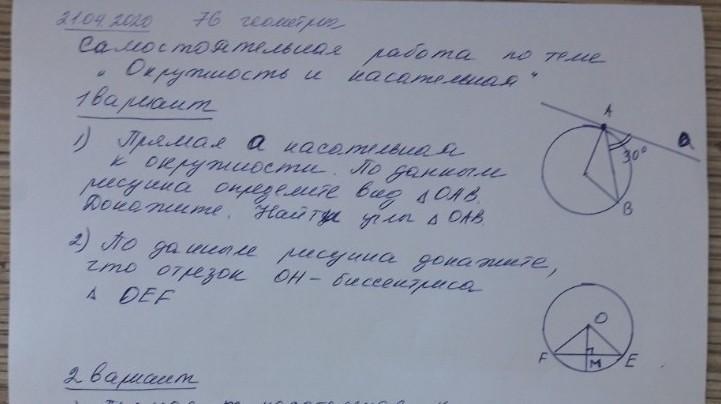 21.04.2020 7б геометрия
Самостоятельная работа по теме
„Окружность и касательная"
1 вариант
1) Прямая а касательная
к окружности. По данным
рисунка определите вид △ОАВ.
Докажите. Найти углы △ОАВ.
А
а
30°
В
2) По данным рисунка докажите,
что отрезок ОН – биссектриса
△ OEF
O
F
M
E
2 вариант